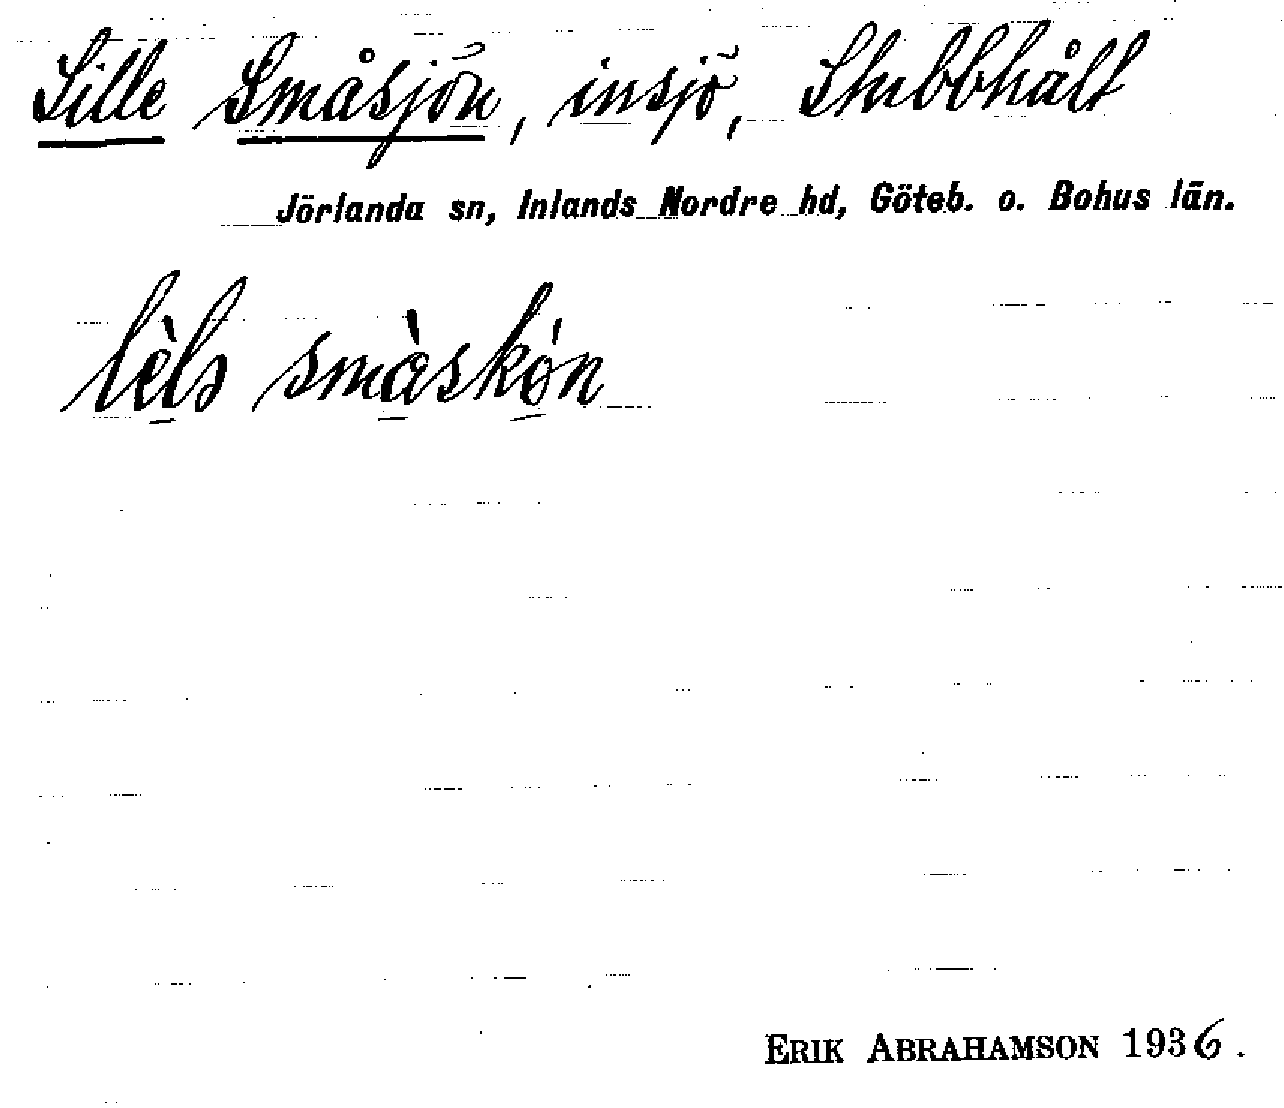 Lille Småsjön, insjö, Stubbhålt
Jörlanda sn, Inlands Nordre hd, Göteb. o. Bohus län.
lèlə smàskón
ERIK ABRAHAMSON 1936.